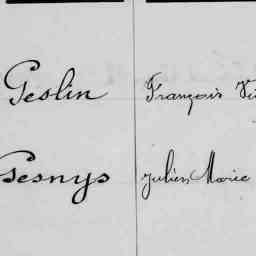 Geslin François
Gesnys Julien Marie